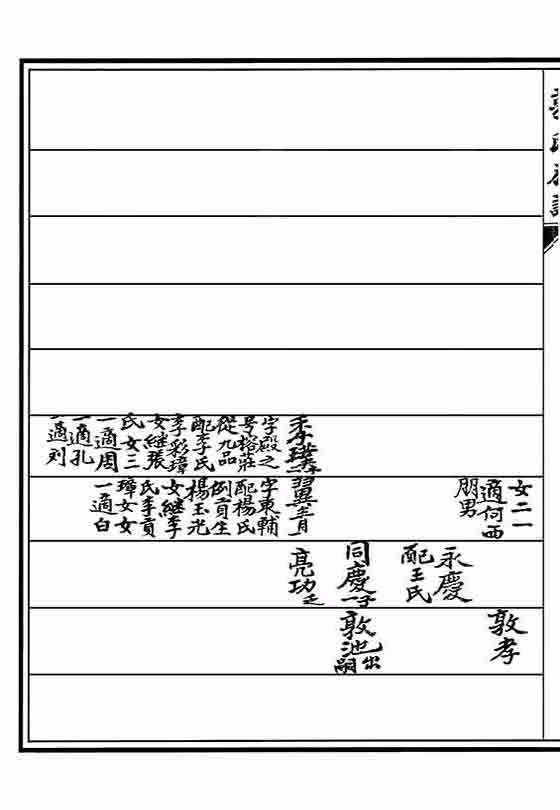 秉璞
字殿之
号榕莊
從九品
配李氏
李彩璋
女継張
氏女三
一適周
一適孔
一適刘
女二一
適何西
朋男
翼青
字東輔
配楊氏
例貢生
楊玉光
女継李
氏李貢
璋女女
一適白
永慶
配王氏
同慶一子
亮功乏
敦孝
敦池出嗣